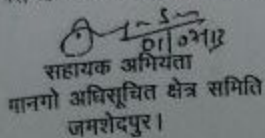 01/07/13
सहायक अभियंता
मानगो अधिसूचित क्षेत्र समिति
जमशेदपुर।